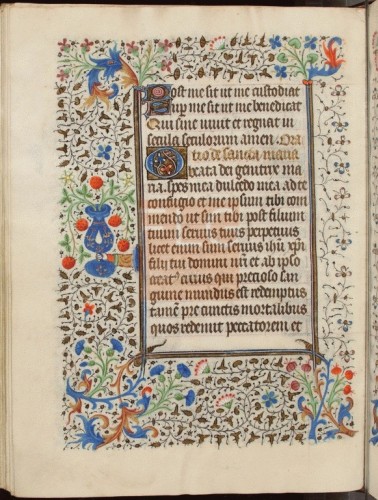 Post me sit ut me custodiat
Sup me sit ut me benedicat
Qui sine viuit et regnat in
secula seculorum amen. Ora
tio de sancta maria
beata dei genitrix ma
ria. spes mea dulcedo mea ad te
confugio et me ip sum tibi com
mendo ut sim tibi post filium
tuum seruus tuus perpetuus
licet enim sim seruus ihu xpi
filii tui domini nri et ab ipso
cuius qui precioso san
guine mundus est redemptus
tamen pre cunctis mortalibus
quos redemit peccatorem et